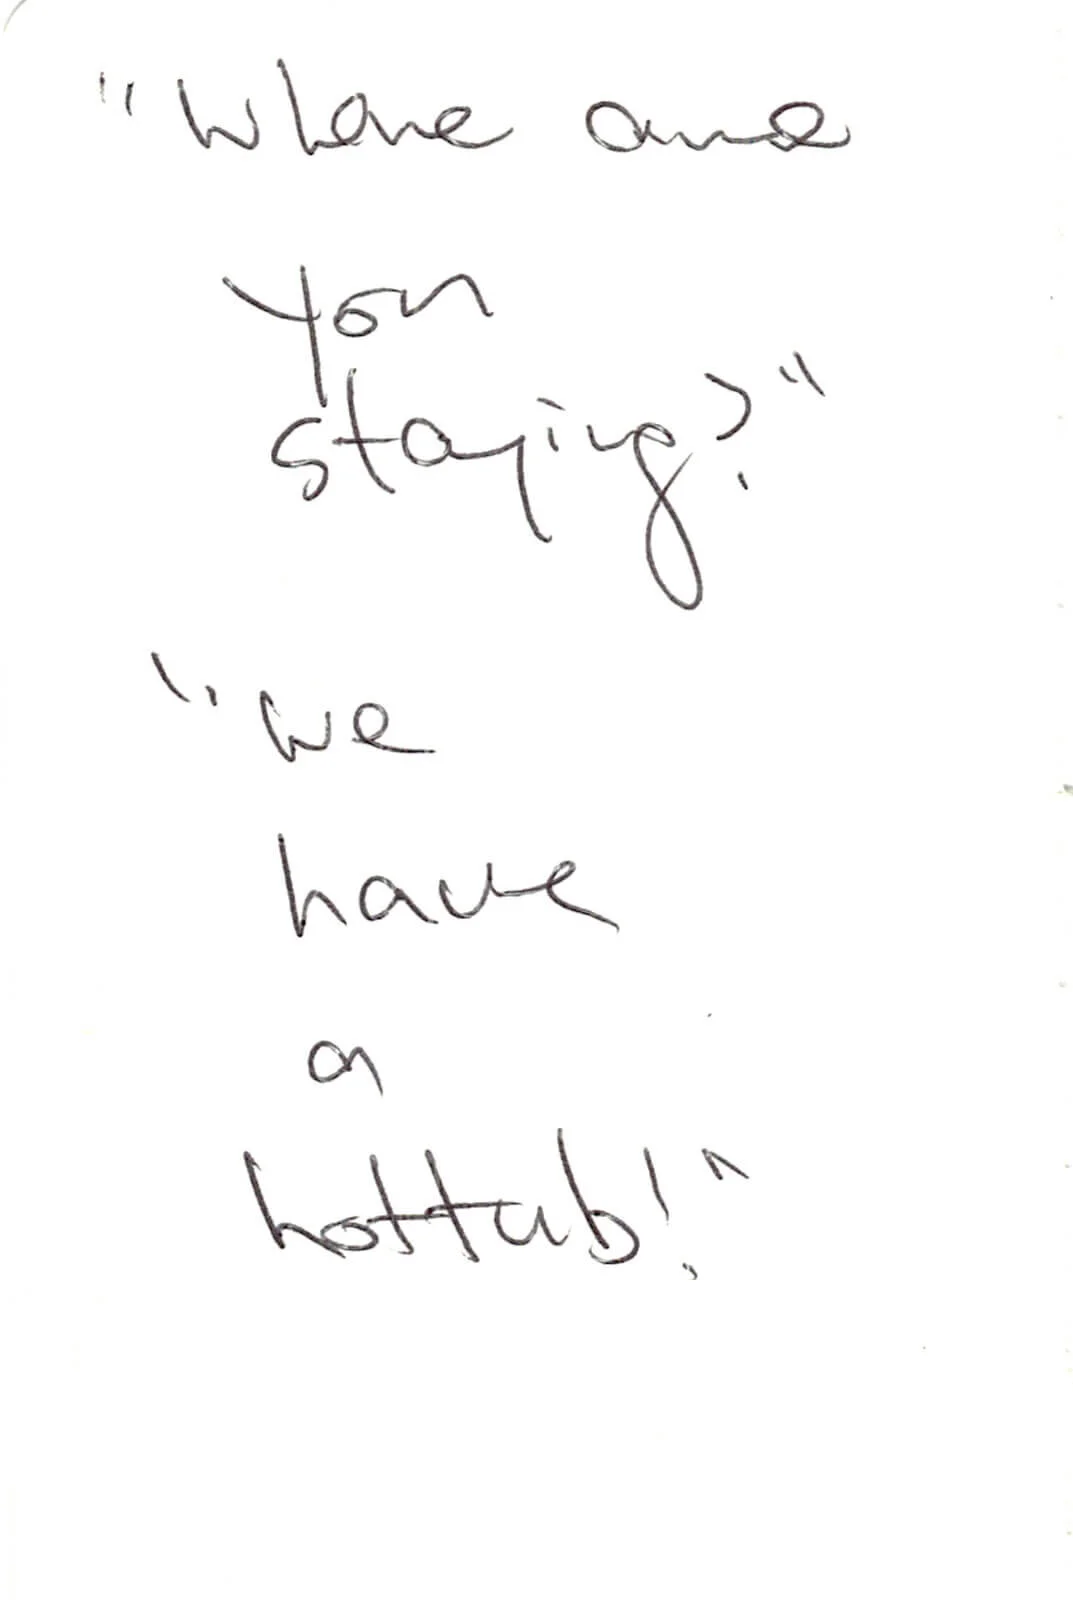 "Where are
you
staying?"
"we
have
a
hottub!"